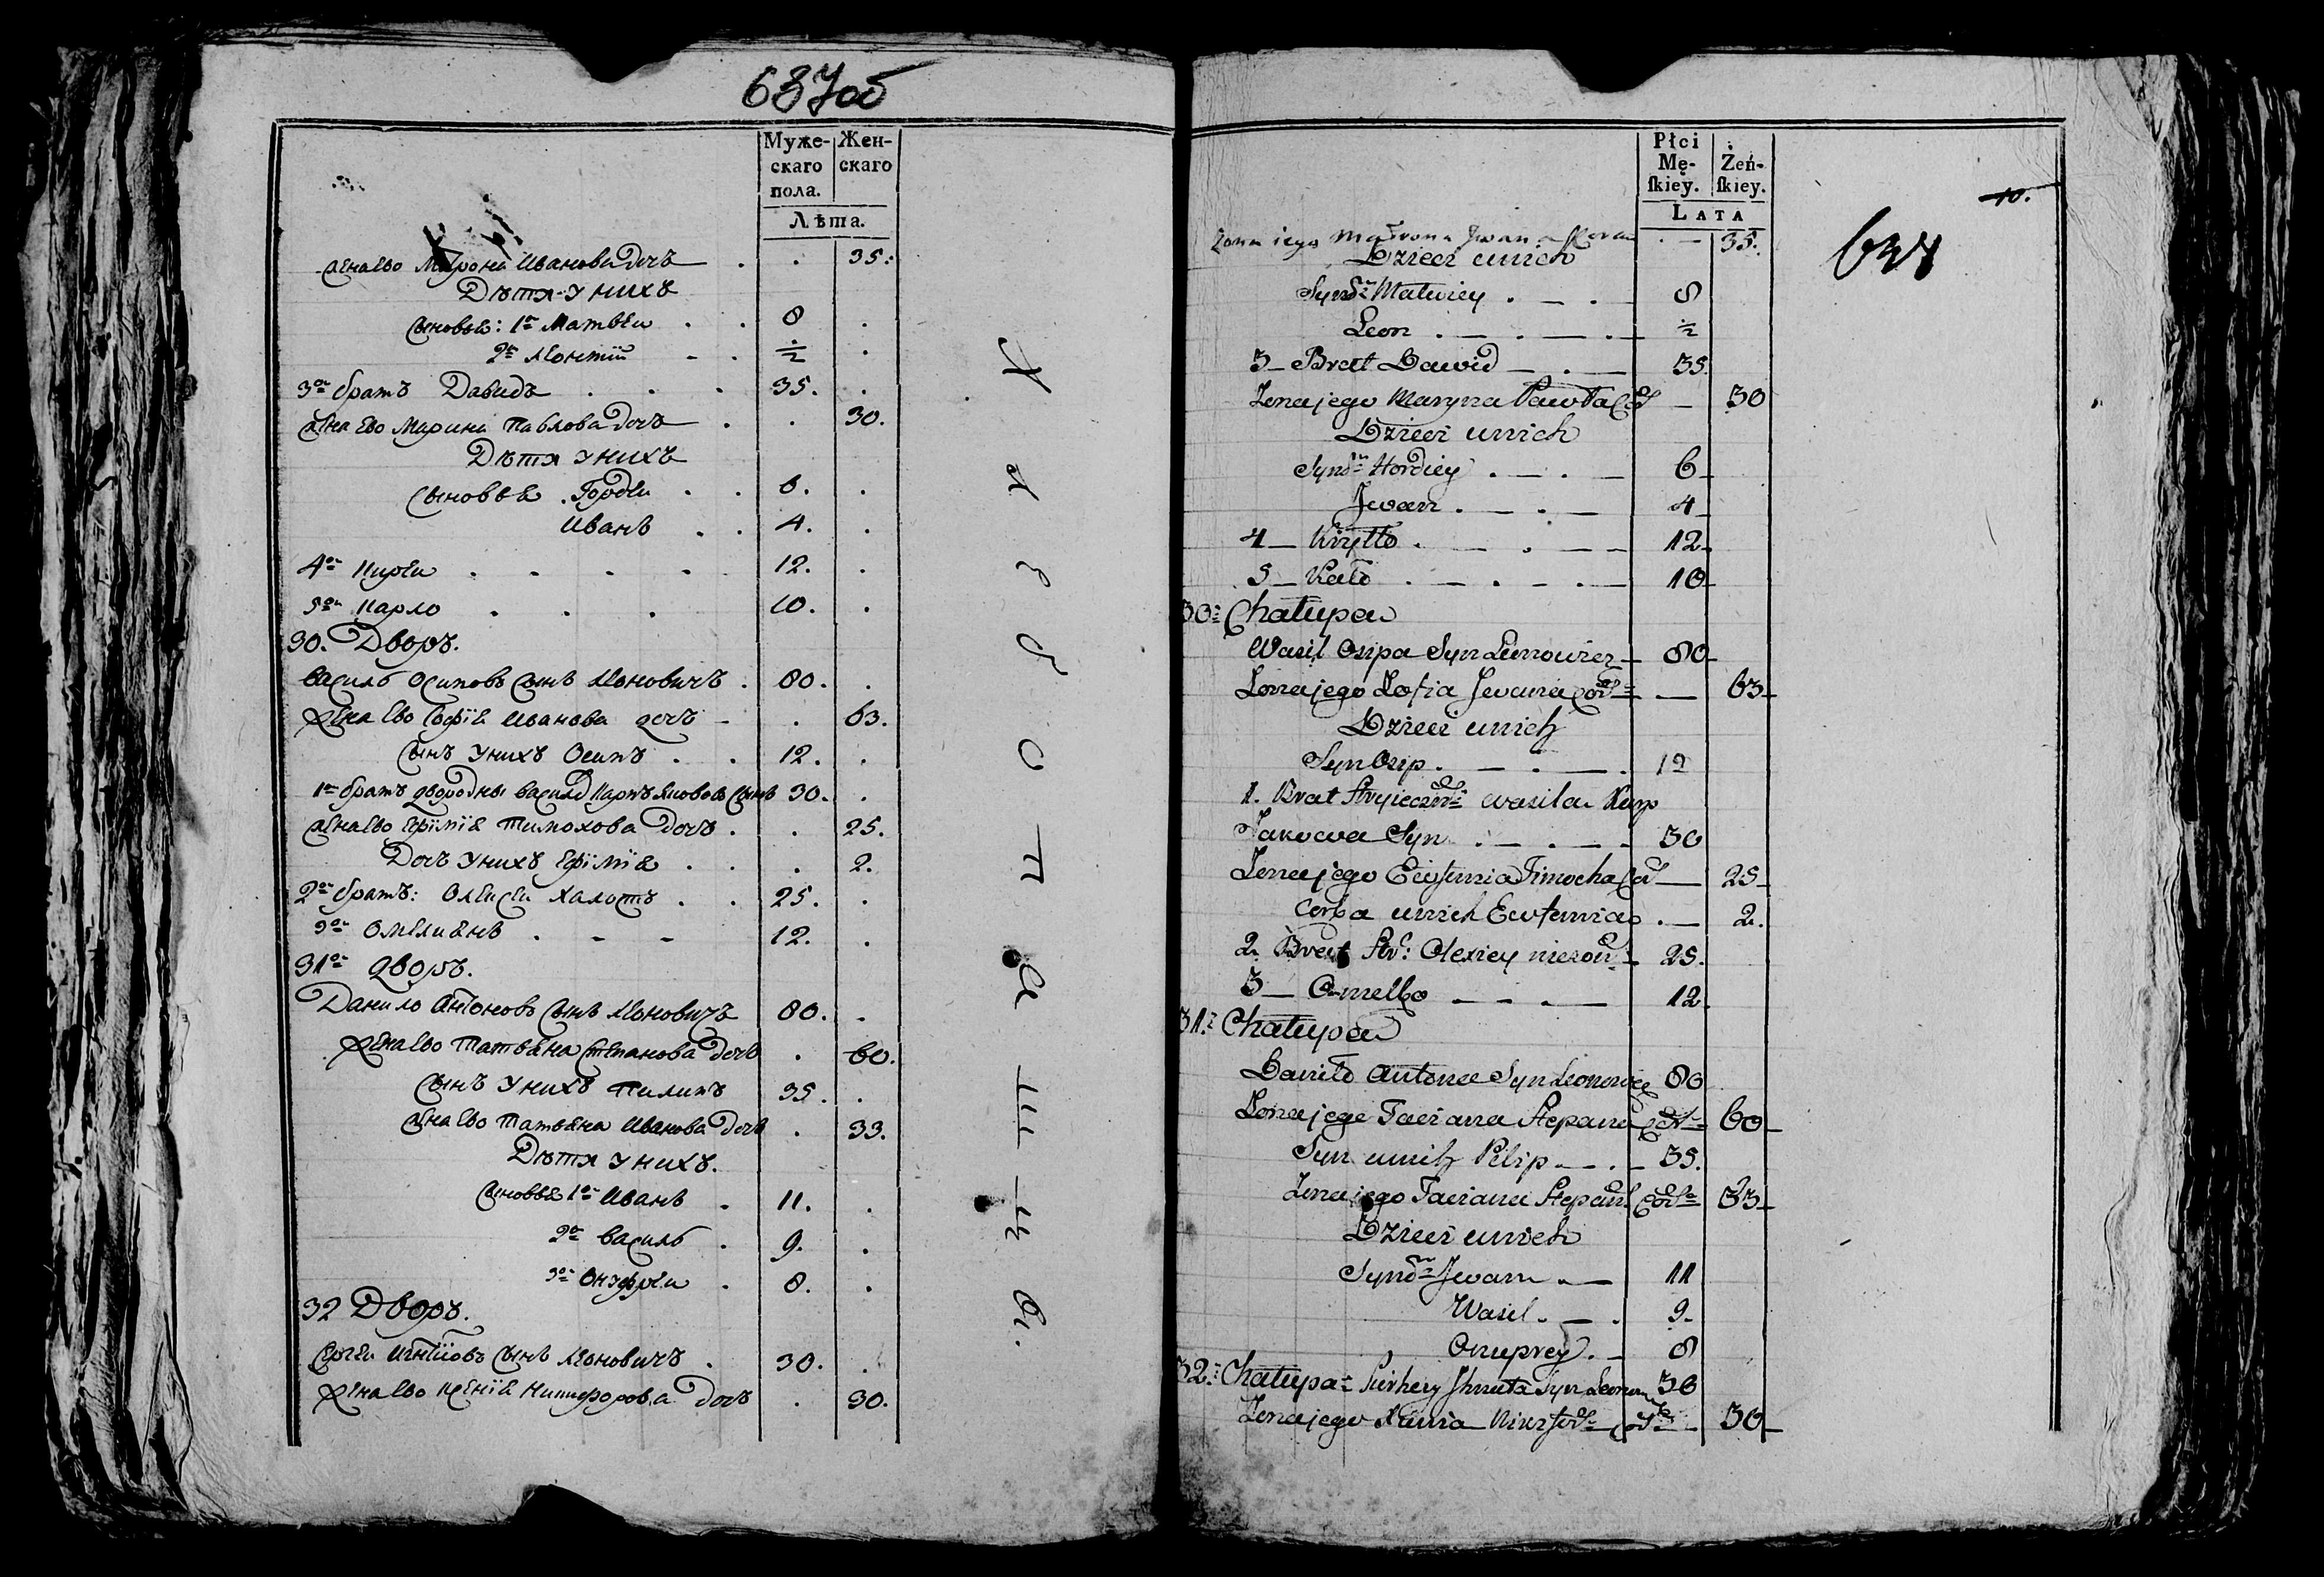 687об
Муже- Жен-
скаго скаго
пола.
Лѣта.
жена Ево Матрона Иванова дочь . . 35.
Дѣтя у нихъ
сыновья: 1й Матвѣи . . 8 .
2й Леонтïй - . ½ .
3й братъ Давидъ . . . 35. .
жена Ево Марина Павлова дочь . . 30.
Дѣтя у нихъ
сыновья . Гордѣи . . 6. .
Иванъ . . 4. .
4й . . . . 12. .
5й Карло . . . 10. .
30. Дворъ.
Василь Осиповъ сынъ Леоновичъ . 80. .
жена Ево Софïя Иванова дочь - . 63.
сынъ у нихъ Осипъ . . 12. .
1й братъ двородны Василя Карпъ Якововъ сынъ 30. .
жена Ево Ефимïя Тимохова дочь . . 25.
Дочь у нихъ Ефïмïя . . . 2.
2й братъ: Олексѣи Халостъ . . 25. .
3й Омелиянъ . - - 12. .
31й дворъ.
Данило Антоновъ сынъ Леоновичъ 80. .
жена Ево Татьяна Степанова дочь . 60.
сынъ у нихъ Пилипъ 35. .
жена Ево Татьяна Иванова дочь . 33.
Дѣтя у нихъ.
сыновья 1й Иванъ . 11. .
2й Василь . 9. .
3й Онуфрѣи . 8. .
32 Дворъ.
Сергѣи сынъ Леоновичъ . 30. .
жена Ево Ксенïя Никифорова дочь . 30.
Płci
Mę- Żeń-
skiey. skiey.
LATA
10.
634
Zona iego Matrona Jwana . — 35.
Dzieci unich
Synów Matwiey . — . — 8
Leon . — . — . — ½
3 — Brat Dawid — . — 35.
Zona jego Maryna Pawła Cór — 30
Dzieci unich
Synów Hordiey . — . — 6 —
Jwan . — . — 4 —
4 — Kiryłło . — . — — 12 —
5 — Karło . — . — . — 10 —
30: Chałupa
Wasil Osipa Syn Leonowicz — 80 —
Zona jego Zofia Jwana córka — 63 —
Dzieci unich
Syn Osip . — . — . 12
1. Brat Stryieczny Wasila Karp
Jakowa Syn . — . — . 30
Zona jego Ewfimia Timocha Cór — 25 —
Corka unich Ewfimia . — 2.
2. Brat Str: Olexiey — 25.
3 — Omelko — — . — 12.
31: Chałupa
Daniło Antona Syn Leonowicz 80
Zona jego Taciana Stepana córka 60 —
Syn unich Pilip — . — 35.
Zona jego Taciana Stepana Córka 33 —
Dzieci unich
Synów Jwan . — 11
Wasil . — . 9.
Onuprey . — 8
32: Chałupa: Syn Leonowicz 30
Zona jego Xienia — 30 —